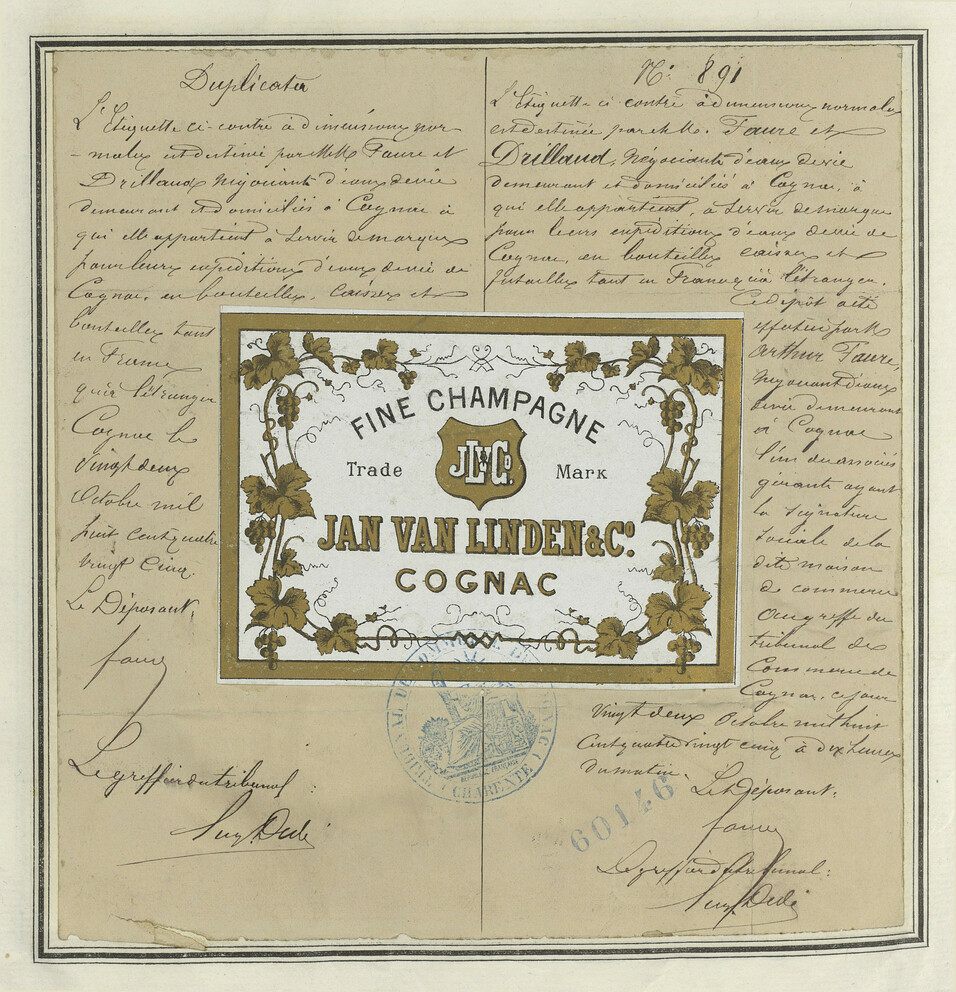 Duplicata
L'Etiquette ci-contre à dimensions nor-
-males est destinée par MM Faure et
Drillaud Négociants d'eaux de vie
demeurant et domiciliés à Cognac à
qui elle appartient à servir de marque
pour leurs expéditions d'eaux de vie de
Cognac, en bouteilles, caisses et
bouteilles tant
en France
qu'à l'étranger
Cognac le
vingt deux
Octobre mil
huit cent quatre
vingt cinq.
Le Déposant,
faure
Le greffier du tribunal
N° 891
L'Etiquette ci contre à dimensions normales
est destinée par MM. Faure et
Drillaud, Négociants d'eaux de vie
demeurant et domiciliés à Cognac, à
qui elle appartient, à servir de marque
pour leurs expéditions d'eaux de vie de
Cognac, en bouteilles caisses et
futailles tant en France qu'à l'étranger.
Ce dépôt a été
effectué par M
Arthur Faure,
Négociant d'eaux
de vie demeurant
à Cognac
l'un des associés
gérants ayant
la signature
sociale de la
dite maison
de commerce
au greffe du
tribunal de
Commerce de
Cognac, ce jour
vingt deux Octobre mil huit
cent quatre vingt cinq à dix heures
du matin.
Le Déposant:
faure
Le greffier du tribunal:
FINE CHAMPAGNE
JL&Co.
Trade Mark
JAN VAN LINDEN & Co.
COGNAC
REPUBLIQUE FRANÇAISE
( CHARENTE )
60146